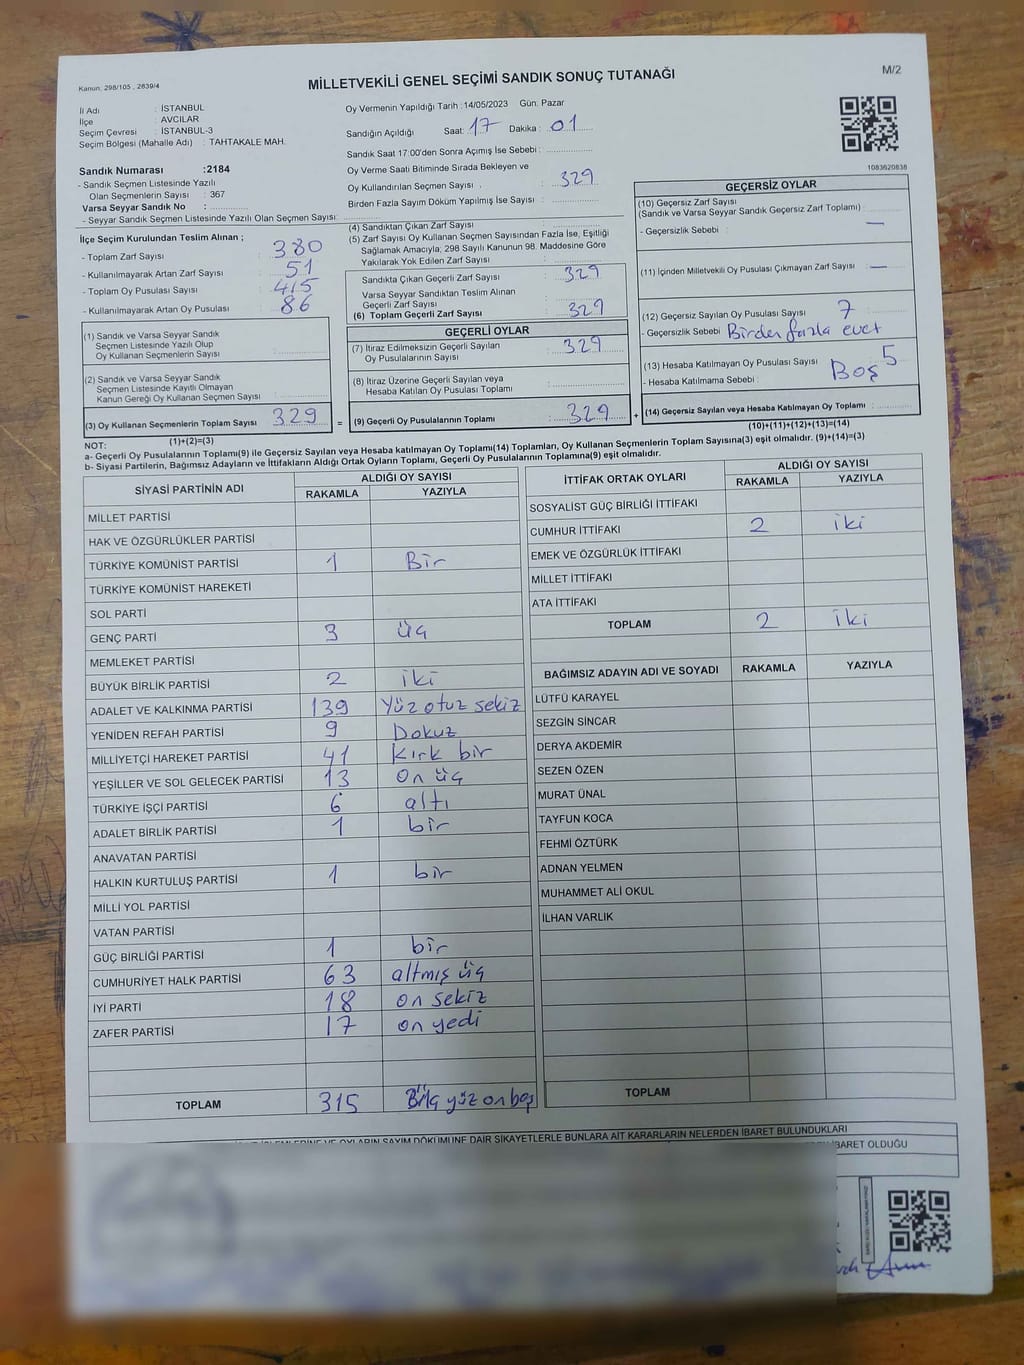 Kanun, 298/105 , 2839/4
MİLLETVEKİLİ GENEL SEÇİMİ SANDIK SONUÇ TUTANAĞI
M/2
İl Adı : İSTANBUL
İlçe : AVCILAR
Seçim Çevresi : İSTANBUL-3
Seçim Bölgesi (Mahalle Adı) : TAHTAKALE MAH.
Sandık Numarası :2184
- Sandık Seçmen Listesinde Yazılı
Olan Seçmenlerin Sayısı : 367
Varsa Seyyar Sandık No :
- Seyyar Sandık Seçmen Listesinde Yazılı Olan Seçmen Sayısı:
Oy Vermenin Yapıldığı Tarih :14/05/2023 Gün: Pazar
Sandığın Açıldığı Saat: 17 Dakika : 01
Sandık Saat 17:00'den Sonra Açımış İse Sebebi :
Oy Verme Saati Bitiminde Sırada Bekleyen ve
Oy Kullandırılan Seçmen Sayısı : 329
Birden Fazla Sayım Döküm Yapılmış İse Sayısı :
1083620838
İlçe Seçim Kurulundan Teslim Alınan ;
- Toplam Zarf Sayısı : 380
- Kullanılmayarak Artan Zarf Sayısı : 51
- Toplam Oy Pusulası Sayısı : 415
- Kullanılmayarak Artan Oy Pusulası : 86
(1) Sandık ve Varsa Seyyar Sandık
Seçmen Listesinde Yazılı Olup
Oy Kullanan Seçmenlerin Sayısı :
(2) Sandık ve Varsa Seyyar Sandık
Seçmen Listesinde Kayıtlı Olmayan
Kanun Gereği Oy Kullanan Seçmen Sayısı :
(3) Oy Kullanan Seçmenlerin Toplam Sayısı : 329
(1)+(2)=(3)
(4) Sandıktan Çıkan Zarf Sayısı :
(5) Zarf Sayısı Oy Kullanan Seçmen Sayısından Fazla İse, Eşitliği
Sağlamak Amacıyla, 298 Sayılı Kanunun 98. Maddesine Göre
Yakılarak Yok Edilen Zarf Sayısı :
Sandıkta Çıkan Geçerli Zarf Sayısı : 329
Varsa Seyyar Sandıktan Teslim Alınan
Geçerli Zarf Sayısı :
(6) Toplam Geçerli Zarf Sayısı : 329
GEÇERLİ OYLAR
(7) İtiraz Edilmeksizin Geçerli Sayılan
Oy Pusulalarının Sayısı : 329
(8) İtiraz Üzerine Geçerli Sayılan veya
Hesaba Katılan Oy Pusulaları Toplamı :
= (9) Geçerli Oy Pusulalarının Toplamı : 329 +
GEÇERSİZ OYLAR
(10) Geçersiz Zarf Sayısı
(Sandık ve Varsa Seyyar Sandık Geçersiz Zarf Toplamı) :
- Geçersizlik Sebebi : —
(11) İçinden Milletvekili Oy Pusulası Çıkmayan Zarf Sayısı : —
(12) Geçersiz Sayılan Oy Pusulası Sayısı : 7
- Geçersizlik Sebebi : Birden fazla evet
(13) Hesaba Katılmayan Oy Pusulası Sayısı : 5
- Hesaba Katılmama Sebebi : Boş
(14) Geçersiz Sayılan veya Hesaba Katılmayan Oy Toplamı :
(10)+(11)+(12)+(13)=(14)
NOT:
a- Geçerli Oy Pusulalarının Toplamı(9) ile Geçersiz Sayılan veya Hesaba katılmayan Oy Toplamı(14) Toplamları, Oy Kullanan Seçmenlerin Toplam Sayısına(3) eşit olmalıdır. (9)+(14)=(3)
b- Siyasi Partilerin, Bağımsız Adayların ve İttifakların Aldığı Ortak Oyların Toplamı, Geçerli Oy Pusulalarının Toplamına(9) eşit olmalıdır.
SİYASİ PARTİNİN ADI
ALDIĞI OY SAYISI
RAKAMLA YAZIYLA
MİLLET PARTİSİ
HAK VE ÖZGÜRLÜKLER PARTİSİ
TÜRKİYE KOMÜNİST PARTİSİ 1 Bir
TÜRKİYE KOMÜNİST HAREKETİ
SOL PARTİ
GENÇ PARTİ 3 üç
MEMLEKET PARTİSİ
BÜYÜK BİRLİK PARTİSİ 2 iki
ADALET VE KALKINMA PARTİSİ 139 Yüz otuz sekiz
YENİDEN REFAH PARTİSİ 9 Dokuz
MİLLİYETÇİ HAREKET PARTİSİ 41 Kırk bir
YEŞİLLER VE SOL GELECEK PARTİSİ 13 On üç
TÜRKİYE İŞÇİ PARTİSİ 6 altı
ADALET BİRLİK PARTİSİ 1 bir
ANAVATAN PARTİSİ
HALKIN KURTULUŞ PARTİSİ 1 bir
MİLLİ YOL PARTİSİ
VATAN PARTİSİ
GÜÇ BİRLİĞİ PARTİSİ 1 bir
CUMHURİYET HALK PARTİSİ 63 altmış üç
İYİ PARTİ 18 on sekiz
ZAFER PARTİSİ 17 on yedi
TOPLAM 315 Üç yüz on beş
İTTİFAK ORTAK OYLARI
ALDIĞI OY SAYISI
RAKAMLA YAZIYLA
SOSYALİST GÜÇ BİRLİĞİ İTTİFAKI
CUMHUR İTTİFAKI 2 iki
EMEK VE ÖZGÜRLÜK İTTİFAKI
MİLLET İTTİFAKI
ATA İTTİFAKI
TOPLAM 2 iki
BAĞIMSIZ ADAYIN ADI VE SOYADI RAKAMLA YAZIYLA
LÜTFÜ KARAYEL
SEZGİN SİNCAR
DERYA AKDEMİR
SEZEN ÖZEN
MURAT ÜNAL
TAYFUN KOCA
FEHMİ ÖZTÜRK
ADNAN YELMEN
MUHAMMET ALİ OKUL
İLHAN VARLIK
TOPLAM
OYLARIN SAYIM DÖKÜMÜNE DAİR ŞİKAYETLERLE BUNLARA AİT KARARLARIN NELERDEN İBARET BULUNDUKLARI
İBARET OLDUĞU